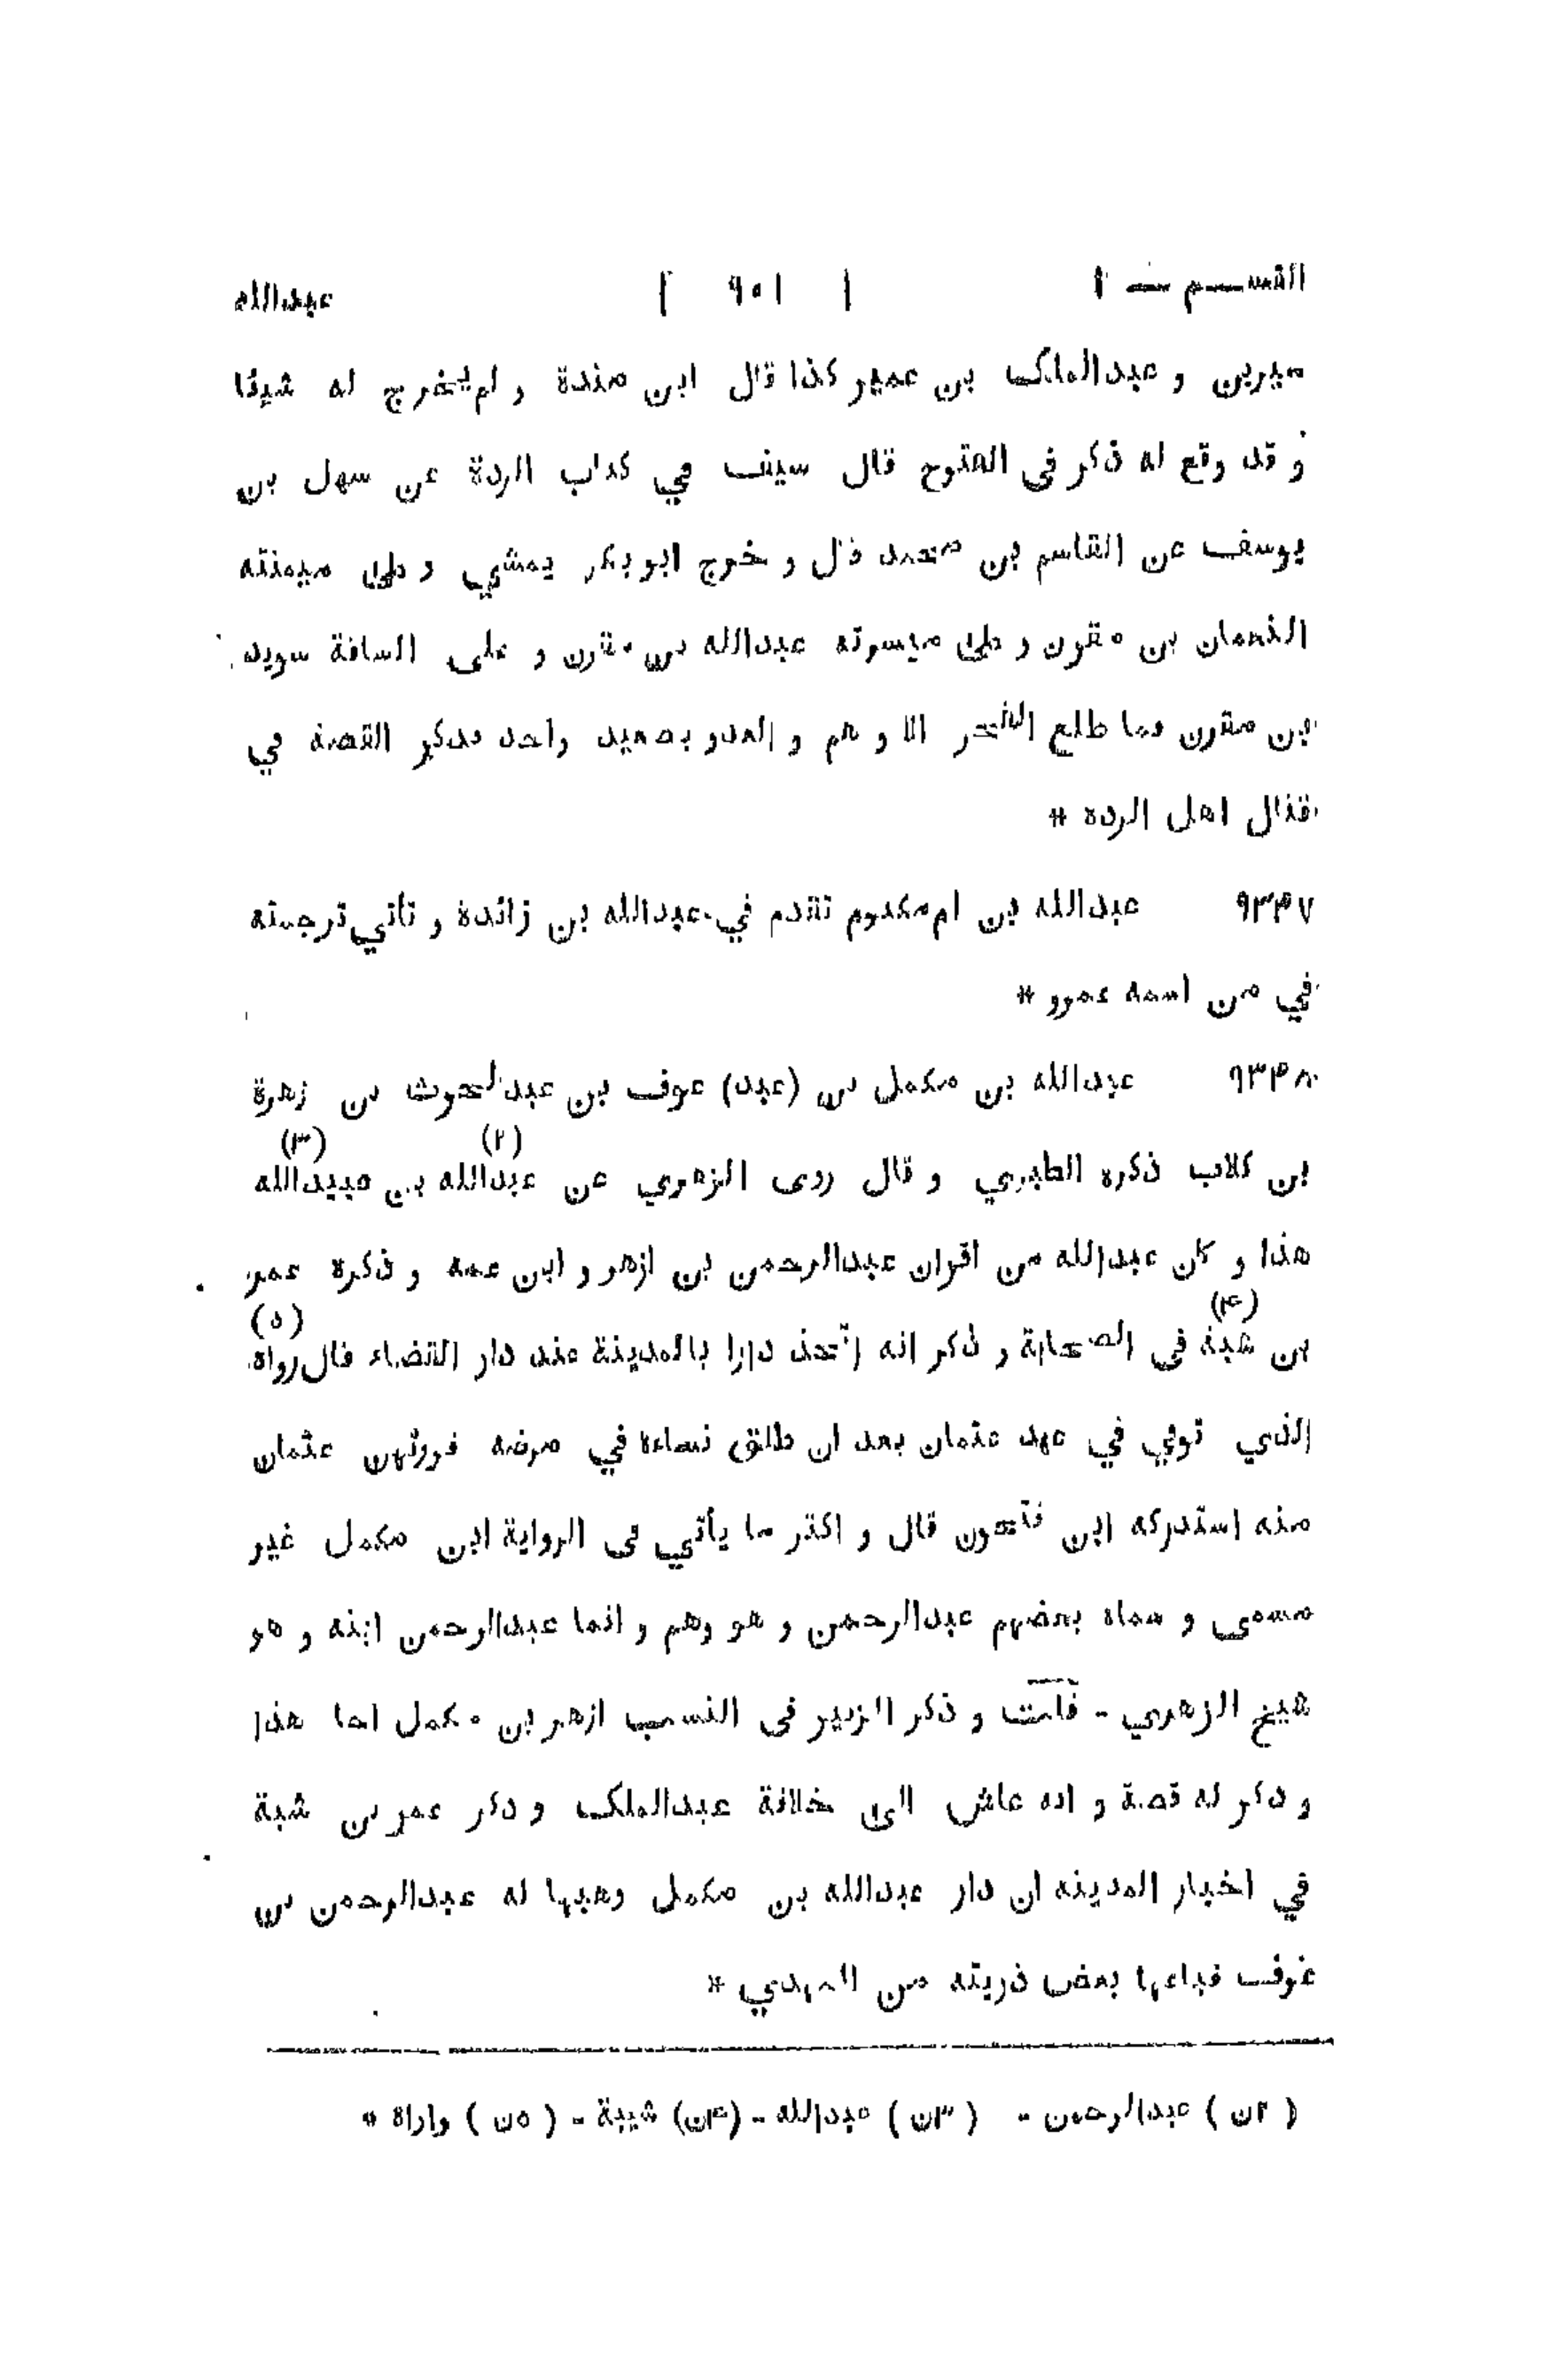 القسم — ١ [ ٩٠١ ] عبدالله
سيرين و عبدالملك بن عمير كذا قال ابن مندة و لم يخرج له شيئا
و قد وقع له ذكر فى الفتوح قال سيف في كتاب الردة عن سهل بن
يوسف عن القاسم بن محمد قال و خرج ابو بكر يمشي و على ميمنته
النعمان بن مقرن و على ميسرته عبدالله بن مقرن و على الساقة سويد
بن مقرن فما طلع الفجر الا و هم و العدو بصعيد واحد فذكر القصة في
قتال اهل الردة *
٩٣٤٧ عبدالله بن ام مكتوم تقدم في عبدالله بن زائدة و تأتي ترجمته
في من اسمه عمرو *
٩٣٤٨ عبدالله بن مكمل بن (عبد) عوف بن عبدالحرث بن زهرة
بن كلاب ذكره الطبري و قال روى الزهري عن عبدالله (٢) بن عبيدالله (٣)
هذا و كان عبدالله من اقران عبدالرحمن بن ازهر و ابن عمه و ذكرة عمر
بن شبة (٤) فى الصحابة و ذكر انه اتخذ دارا بالمدينة عند دار القضاء قال رواة (٥)
الذي توفي في عهد عثمان بعد ان طلق نساءة في مرضه فورثهن عثمان
منه استدركه ابن فتحون قال و اكثر ما يأتي فى الرواية ابن مكمل غير
مسمى و سماة بعضهم عبدالرحمن و هو وهم و انما عبدالرحمن ابنه و هو
شيخ الزهري - قلت و ذكر الزبير فى النسب ازهر بن مكمل اخا هذا
و ذكر له قصة و انه عاش الى خلافة عبدالملك و ذكر عمر بن شبة
في اخبار المدينه ان دار عبدالله بن مكمل وهبها له عبدالرحمن بن
عوف فباعها بعض ذريته من المهدي *
( ٢ن ) عبدالرحمن - ( ٣ن ) عبدالله - (٤ن) شيبة - ( ٥ن ) واراة *